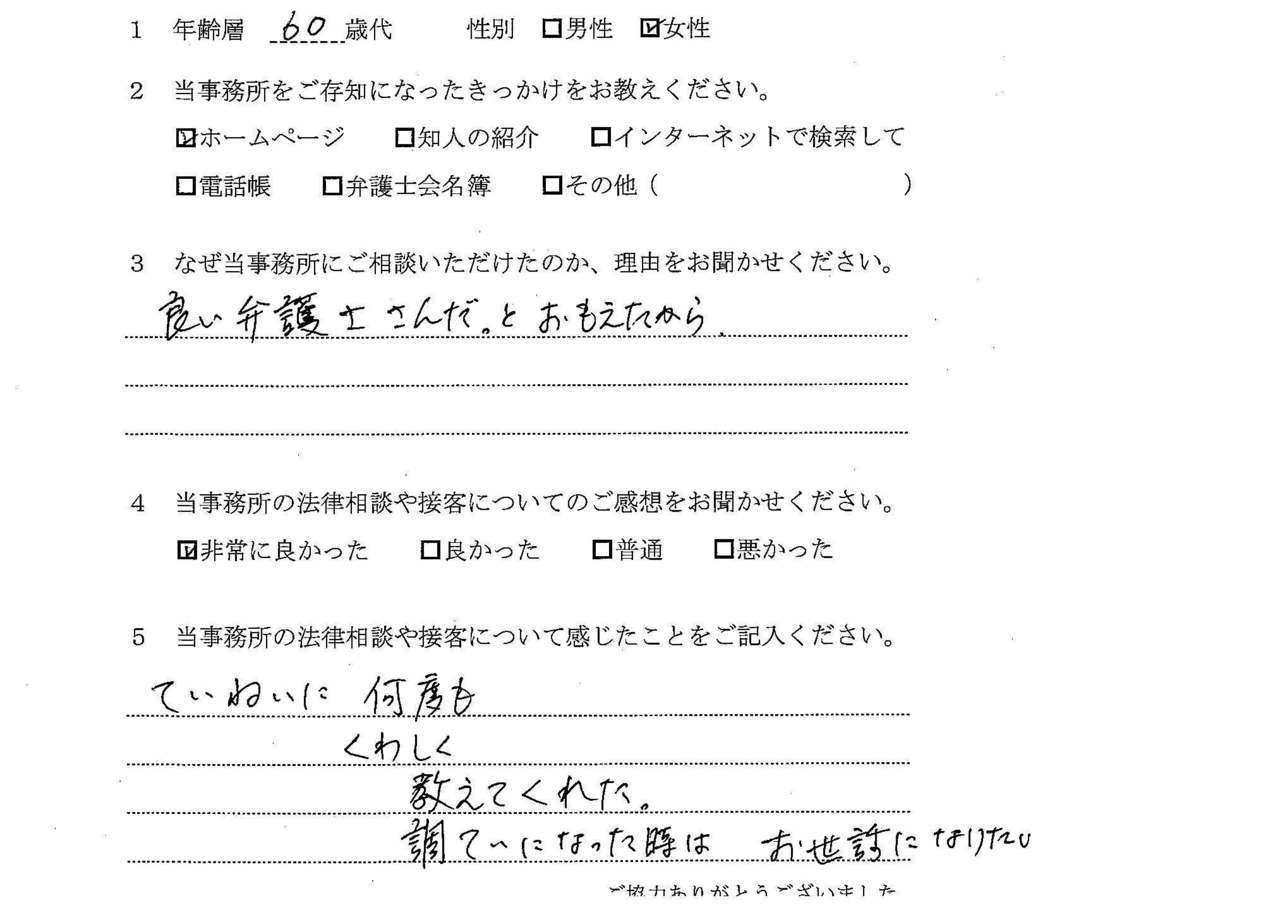 1 年齢層 60歳代 性別 □男性 ☑女性
2 当事務所をご存知になったきっかけをお教えください。
☑ホームページ □知人の紹介 □インターネットで検索して
□電話帳 □弁護士会名簿 □その他（ ）
3 なぜ当事務所にご相談いただけたのか、理由をお聞かせください。
良い弁護士さんだ。とおもえたから.
4 当事務所の法律相談や接客についてのご感想をお聞かせください。
☑非常に良かった □良かった □普通 □悪かった
5 当事務所の法律相談や接客について感じたことをご記入ください。
ていねいに 何度も
くわしく
教えてくれた。
調ていになった時は お世話になりたい
ご協力ありがとうございました